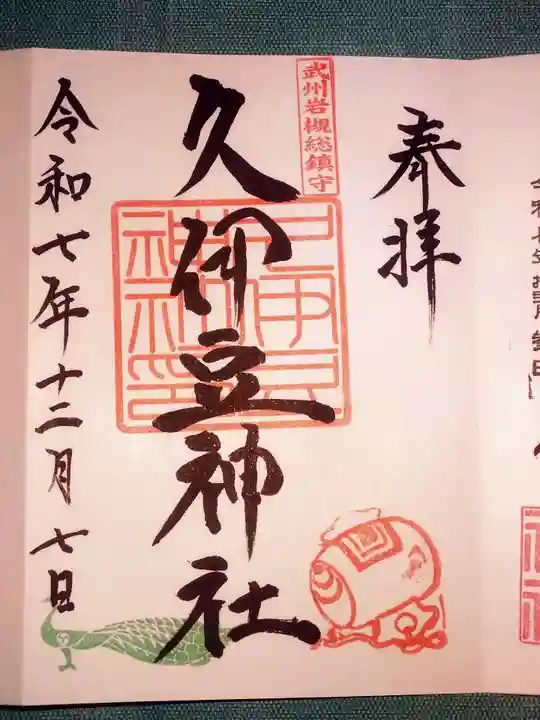 奉拝
武州岩槻総鎮守
久伊豆神社
令和七年十二月七日